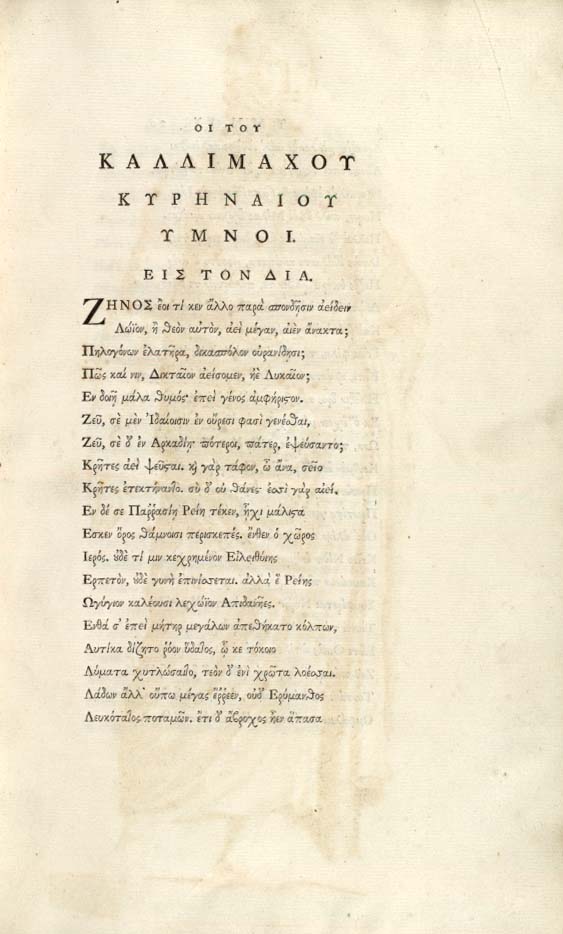 ΟΙ ΤΟΥ
ΚΑΛΛΙΜΑΧΟΥ
ΚΥΡΗΝΑΙΟΥ
ΥΜΝΟΙ.
ΕΙΣ ΤΟΝ ΔΙΑ.
ΖΗΝΟΣ ἔοι τί κεν ἄλλο παρὰ σπονδῇσιν ἀείδειν
Λώϊον, ἢ θεὸν αὐτὸν, ἀεὶ μέγαν, αἰὲν ἄνακτα;
Πηλογόνων ἐλατῆρα, δικασπόλον οὐρανίδῃσι;
Πῶς καί νιν, Δικταῖον ἀείσομεν, ἠὲ Λυκαῖον;
Εν δοιῇ μάλα θυμός· ἐπεὶ γένος ἀμφήριστον.
Ζεῦ, σὲ μὲν Ἰδαίοισιν ἐν οὔρεσί φασι γενέσθαι,
Ζεῦ, σὲ δ' ἐν Αρκαδίῃ· πότεροι, πάτερ, ἐψεύσαντο;
Κρῆτες ἀεὶ ψεῦσται. καὶ γὰρ τάφον, ὦ ἄνα, σεῖο
Κρῆτες ἐτεκτήναντο. σὺ δ' οὐ θάνες· ἐσσὶ γὰρ αἰεί.
Εν δέ σε Παῤῥασίῃ Ρείη τέκεν, ἧχι μάλιστα
Εσκεν ὄρος θάμνοισι περισκεπές. ἔνθεν ὁ χῶρος
Ιερός. οὐδέ τί μιν κεχρημένον Εἰλειθυίης
Ερπετὸν, οὐδὲ γυνὴ ἐπινίσσεται. ἀλλά ἑ Ρείης
Ωγύγιον καλέουσι λεχώϊον Απιδανῆες.
Ενθά σ' ἐπεὶ μήτηρ μεγάλων ἀπεθήκατο κόλπων,
Αὐτίκα δίζητο ῥόον ὕδατος, ᾧ κε τόκοιο
Λύματα χυτλώσαιτο, τεὸν δ' ἐνὶ χρῶτα λοέσσαι.
Λάδων ἀλλ' οὔπω μέγας ἔῤῥεεν, οὐδ' Ερύμανθος
Λευκότατος ποταμῶν. ἔτι δ' ἄβροχος ἦεν ἅπασα